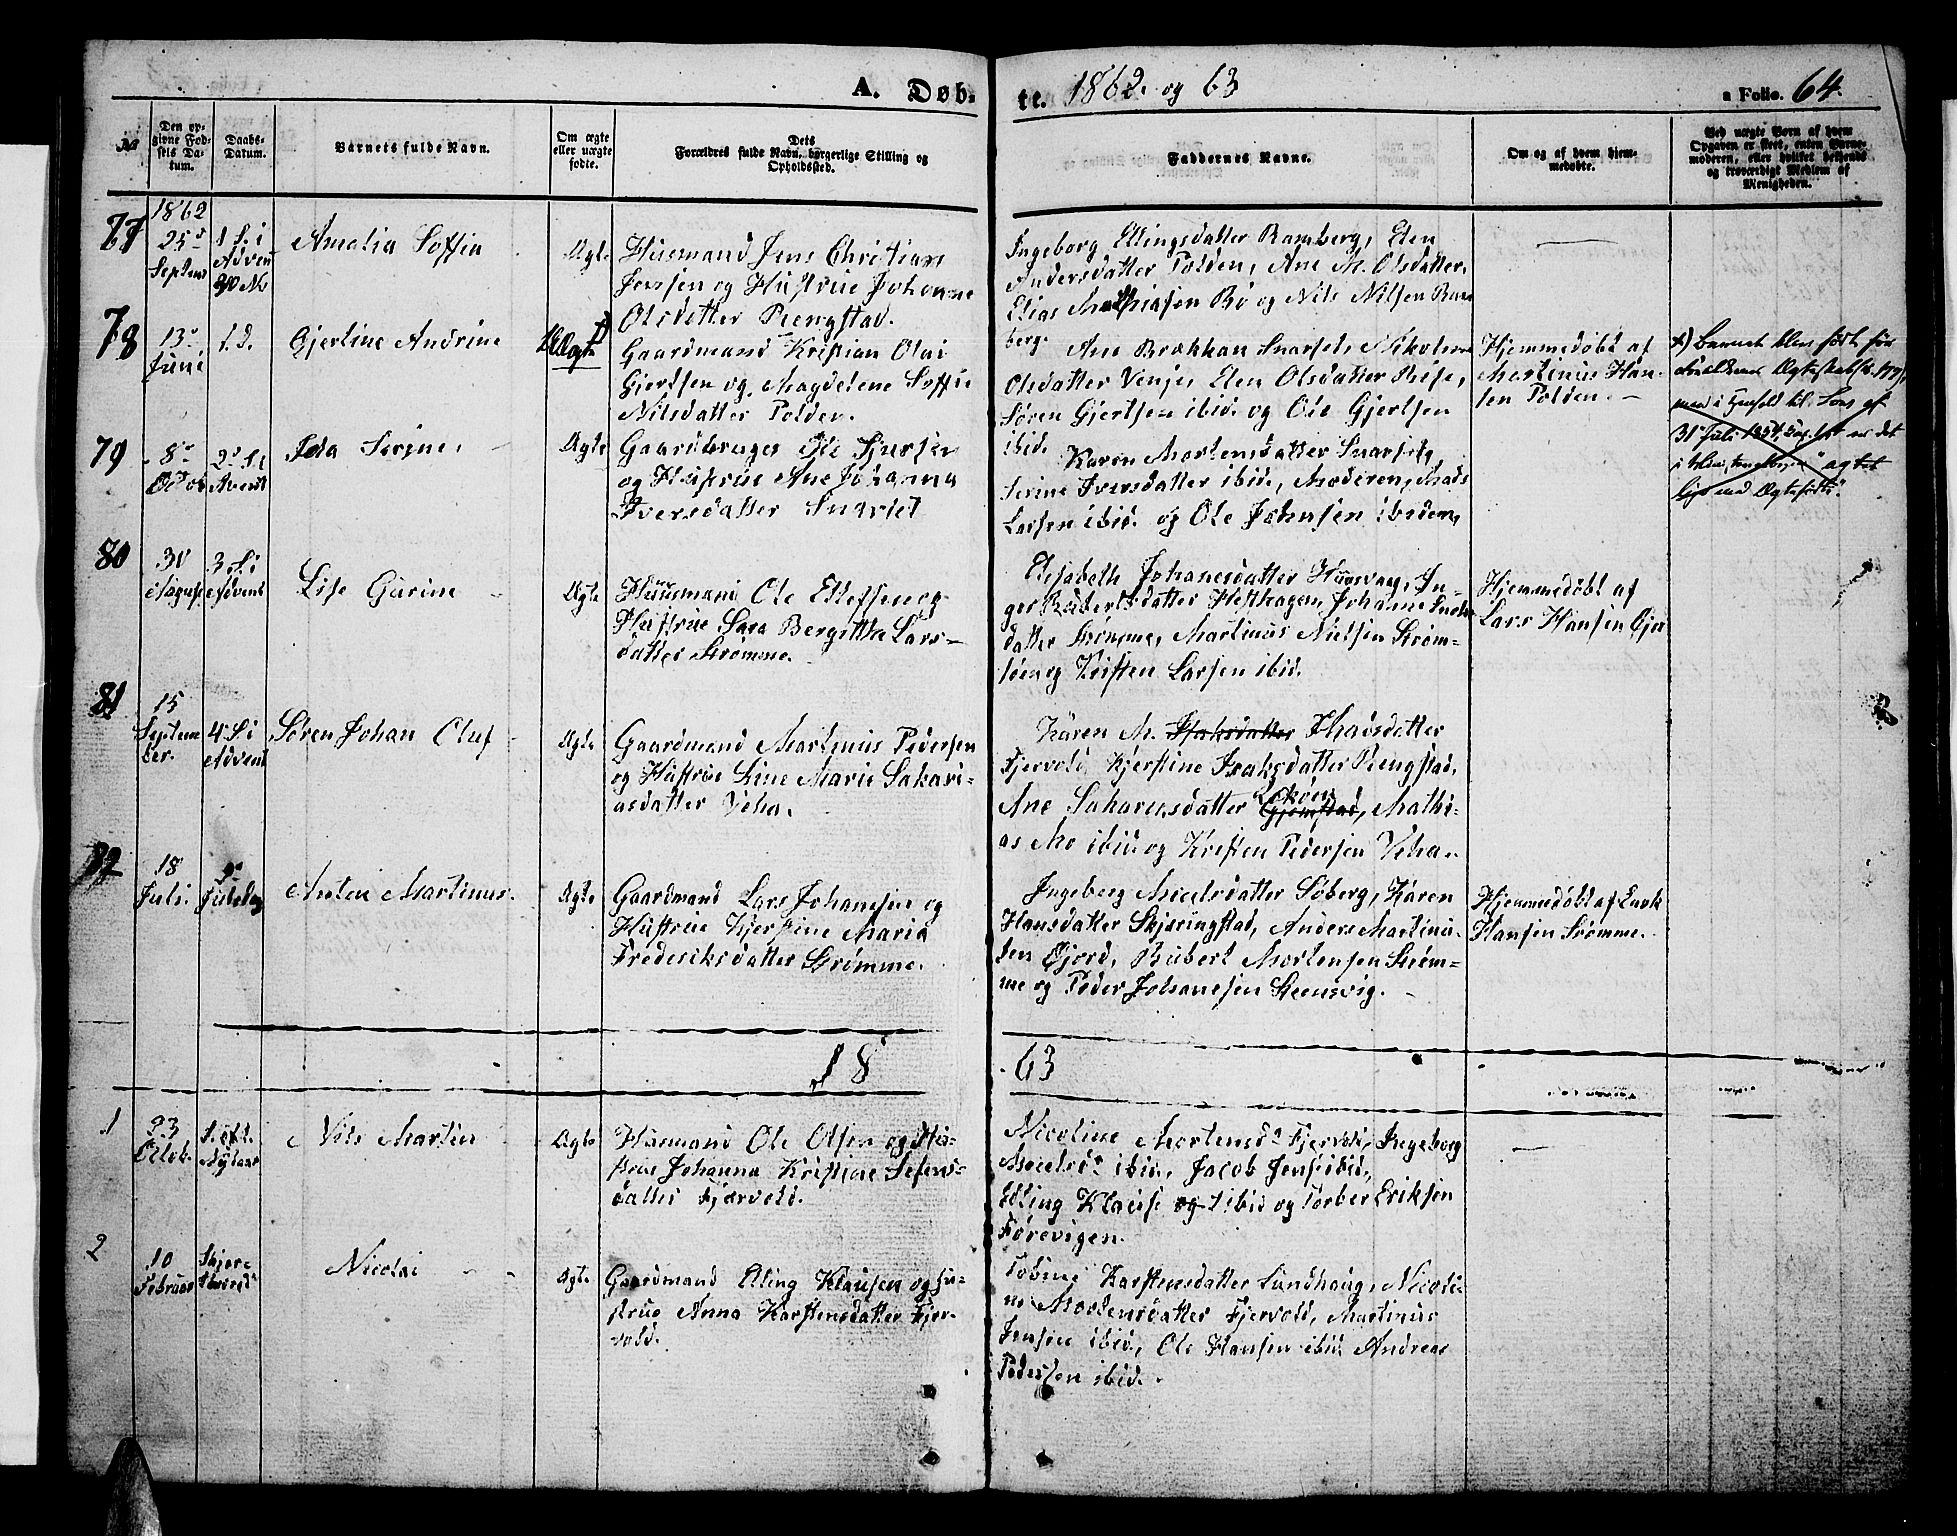 A. Døb-
te. 1862. og 63
a Folio. 64.
No
Den op-
givne Fød-
sels Da-
tum.
Daabs-
Datum.
Barnets fulde Navn.
Om ægte
eller uægte
fødte.
Dets
Forældres fulde Navn, borgerlige Stilling og
Opholdssted.
Faddernes Navne.
Om og af hvem hjem-
medøbte.
Ved uægte Børn af hvem
Opgaven er skeet, enten Barne-
moderen, eller hvilket bekjendt
og troværdigt Medlem af
Menigheden.
77
1862
25de
Septemb
1 S. i
Advent
Amalia Soffia
Ægte
Husmand Jens Christian
Jenssen og Hustrue Johanne
Olsdatter Rengstad.
Ingeborg Ellingsdatter Ramberg, Elen
Andersdatter Polden, Ane M. Olsdatter,
Elias Mathiasen Bø og Nils Nilsen Ram
berg.
78
13de
Juni
1. d.
Gjertine Andrine
UÆgte
Gaardmand Kristian Olai
Gjertsen og Magdelene Soffie
Nilsdatter Polden.
Ane Brækkan Snarset, Nikoline
Olsdatter Venje, Elen Olsdatter Reise,
Søren Gjertsen ibid. og Ole Gjertsen
ibid.
Hjemmedøbt af
Martinus Han-
sen Polden.
*) Barnet blev født før
Forældrenes Ægteskab
men i Henhold til Lov af
31te Juli 1854 er det
agtet
lige med Ægtefødte".
79
8de
Octob
2d S. i
Advent
Ida Serine
Ægte
Gaardbruger Ole Sjursen
og Hustrue Ane Johanna
Iversdatter Snarset
Karen Mortensdatter Snarset,
Serine Iversdatter ibid., Moderen, Mads
Larsen ibid. og Ole Johnsen ibidem,
80
30
August
3 S. i
Advent
Lise Gurine
Ægte
Husmand Ole Ellefsen og
Hustrue Sara Bergitta Lars-
datter Strømme.
Elisabeth Johanesdatter Husvaag, In-
ger Rubertsdatter Hesthagen, Johanne
datter Strømme, Martinus Nielsen Strøm-
sen og Kristen Larsen ibid.
Hjemmedøbt af
Lars Hansen Gjer
81
15
Septem
ber.
4 S. i
Advent
Søren Johan Oluf
Ægte
Gaardmand Martinus Pedersen
og Hustrue Line Marie Sakari-
asdatter Veha.
Karen M. Isaksdatter Thadsdatter
Fjervold, Kjerstine Isaksdatter Rengstad,
Ane Sakariasdatter Gjømstad, Mathi-
as Mo ibid. og Kristen Pedersen Veha.
82
18
Juli.
2d
Juledag
Anton Martinus.
Ægte
Gaardmand Lars Johansen og
Hustrue Kjerstine Maria
Frederiksdatter Strømme.
Ingeborg Nielsdatter Søberg, Karen
Hansdatter Skjæringstad, Anders Martinu-
sen Gjørd, Rubert Mortensen Strøm-
me og Peder Johansen Steensvig.
Hjemmedøbt af
Hansen Strømme.
18
63
1
23
Octob.
S. eft.
Nytaar
Nils Martin
Ægte
Husmand Ole Olsen og Hu-
strue Johanna Kristine
datter Fjærvold.
Nicoline Mortensd. Fjervold, Ingeborg
ibid. Jacob Jens. ibid.,
Elling Klaus. og ibid og Torber Eriksen
Førevigen.
2
10
Februar
Skjær-
thorsd.
Nicolai
Ægte
Gaardmand Elling Klausen og Hu-
strue Anna Karstensdatter Fjer-
vold.
Karstensdatter Sundhaug, Nicoli-
ne Mortensdatter Fjervold, Martinus
Jensen ibid., Ole Hansen ibid. Andreas
Pedersen ibid.